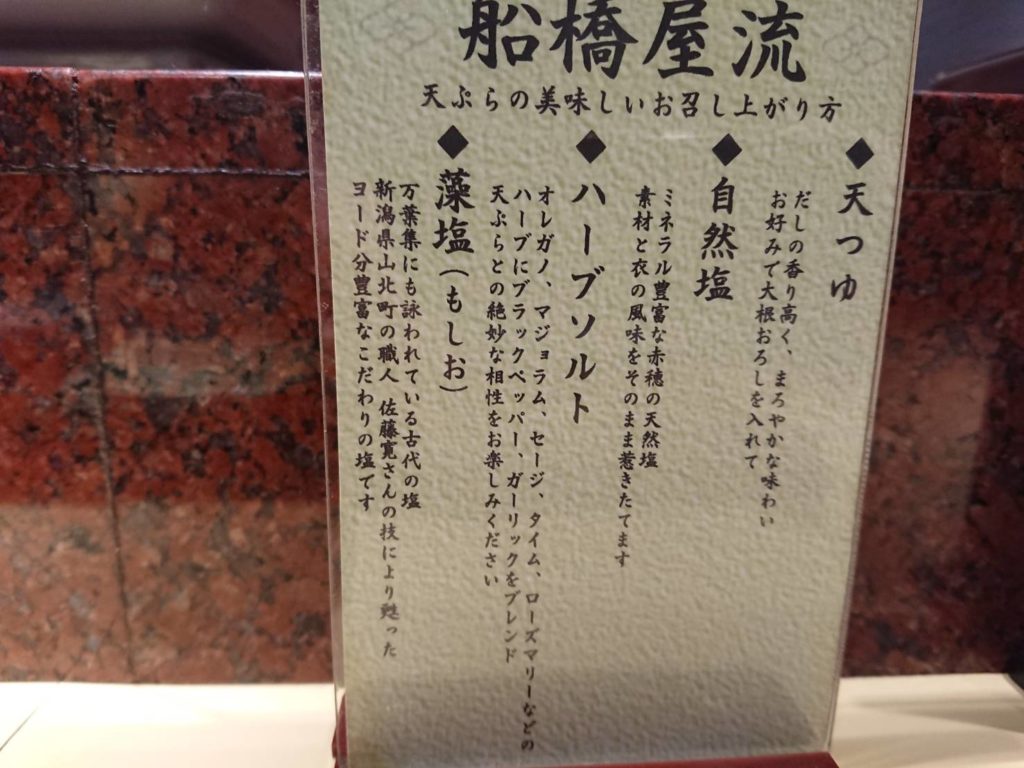 船橋屋流
天ぷらの美味しいお召し上がり方
◆天つゆ
だしの香り高く、まろやかな味わい
お好みで大根おろしを入れて
◆自然塩
ミネラル豊富な赤穂の天然塩
素材と衣の風味をそのまま惹きたてます
◆ハーブソルト
オレガノ、マジョラム、セージ、タイム、ローズマリーなどの
ハーブにブラックペッパー、ガーリックをブレンド
天ぷらとの絶妙な相性をお楽しみください
◆藻塩(もしお)
万葉集にも詠われている古代の塩
新潟県山北町の職人 佐藤寛さんの技により甦った
ヨード分豊富なこだわりの塩です